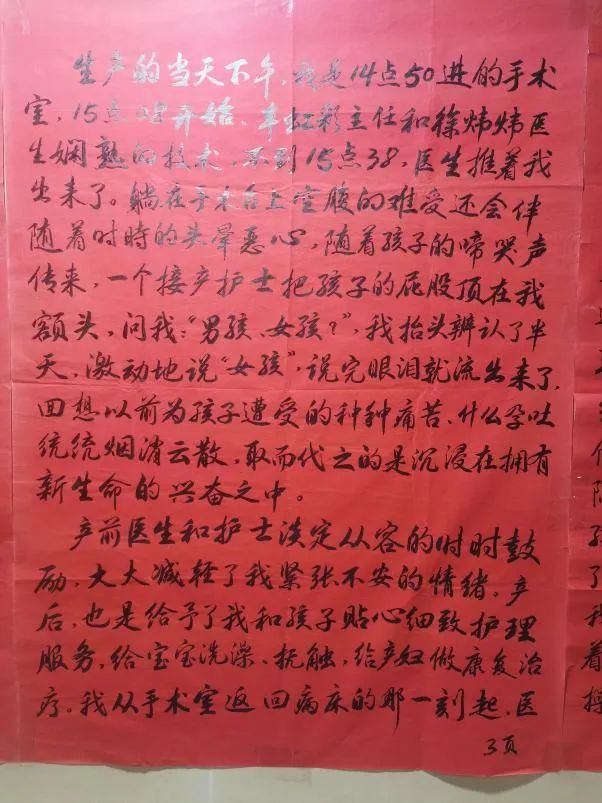 生产的当天下午，我是14点50进的手术
室，15点08开始、车虹彩主任和徐炜炜医
生娴熟的技术，不到15点38，医生推着我
出来了。躺在手术台上空腹的难受还会伴
随着时時的头晕恶心，随着孩子的啼哭声
传来，一个接产护士把孩子的屁股顶在我
额头，问我：“男孩、女孩？”，我抬头辨认了半
天，激动地说“女孩”，说完眼泪就流出来了，
回想以前为孩子遭受的种种痛苦、什么孕吐
统统烟消云散，取而代之的是沉浸在拥有
新生命的兴奋之中。
产前医生和护士淡定从容的时时鼓
励，大大减轻了我紧张不安的情绪。产
后，也是给予了我和孩子贴心细致护理
服务，给宝宝洗澡、抚触，给产妇做康复治
疗。我从手术室返回病床的那一刻起，医
3页